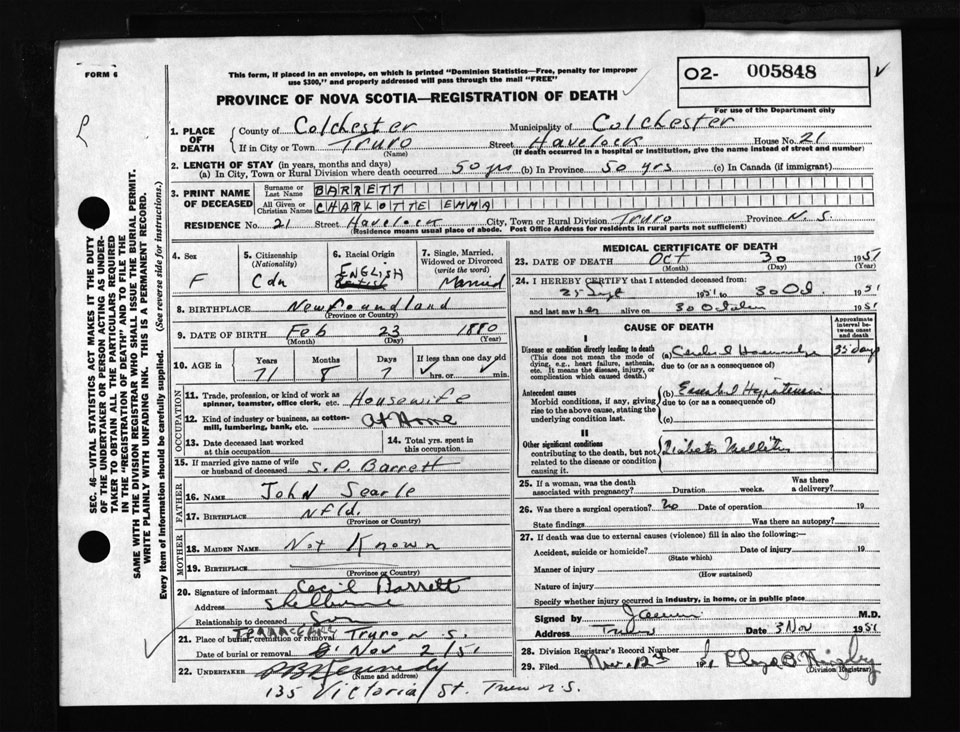 FORM 6
This form, if placed in an envelope, on which is printed "Dominion Statistics—Free, penalty for improper
use $300," and properly addressed will pass through the mail "FREE"
PROVINCE OF NOVA SCOTIA—REGISTRATION OF DEATH
O2- 005848
For use of the Department only
1. PLACE OF DEATH
County of Colchester Municipality of Colchester
If in City or Town Truro Street Havelock House No. 21
(Name) (If death occurred in a hospital or institution, give the name instead of street and number)
2. LENGTH OF STAY (in years, months and days)
(a) In City, Town or Rural Division where death occurred 50 yrs (b) In Province 50 yrs (c) In Canada (if immigrant)
3. PRINT NAME OF DECEASED
Surname or Last Name BARRETT
All Given or Christian Names CHARLOTTE EMMA
RESIDENCE No. 21 Street Havelock City, Town or Rural Division Truro Province N.S.
(Residence means usual place of abode. Post Office Address for residents in rural parts not sufficient)
4. Sex F
5. Citizenship (Nationality) Cdn
6. Racial Origin ENGLISH British
7. Single, Married, Widowed or Divorced (write the word) Married
8. BIRTHPLACE Newfoundland
(Province or Country)
9. DATE OF BIRTH Feb 23 1880
(Month) (Day) (Year)
10. AGE in Years Months Days If less than one day old
71 8 7 hrs. or min.
OCCUPATION
11. Trade, profession, or kind of work as spinner, teamster, office clerk, etc. Housewife
12. Kind of industry or business, as cotton-mill, lumbering, bank, etc. At Home
13. Date deceased last worked at this occupation
14. Total yrs. spent in this occupation
15. If married give name of wife or husband of deceased S.P. Barrett
FATHER
16. NAME John Searle
17. BIRTHPLACE Nfld.
(Province or Country)
MOTHER
18. MAIDEN NAME Not Known
19. BIRTHPLACE
(Province or Country)
20. Signature of informant Cecil Barrett
Address Shelburne
Relationship to deceased Son
21. Place of burial, cremation or removal Truro N.S.
Date of burial or removal Nov 2/51
22. UNDERTAKER Kennedy
(Name and address)
135 Victoria St. Truro N.S.
MEDICAL CERTIFICATE OF DEATH
23. DATE OF DEATH Oct 30 1951
(Month) (Day) (Year)
24. I HEREBY CERTIFY that I attended deceased from:
25 Sept 1951 to 30 Oct. 1951
and last saw her alive on 30 October 1951
CAUSE OF DEATH
Approximate interval between onset and death
I
Disease or condition directly leading to death
(This does not mean the mode of dying, e.g., heart failure, asthenia, etc. It means the disease, injury, or complication which caused death.)
(a) Cerebral Haemorrhage 35 days
due to (or as a consequence of)
Antecedent causes
Morbid conditions, if any, giving rise to the above cause, stating the underlying condition last.
(b) Essential Hypertension
due to (or as a consequence of)
(c)
II
Other significant conditions contributing to the death, but not related to the disease or condition causing it.
Diabetes Mellitus
25. If a woman, was the death associated with pregnancy? Duration weeks. Was there a delivery?
26. Was there a surgical operation? no Date of operation 19
State findings Was there an autopsy?
27. If death was due to external causes (violence) fill in also the following:—
Accident, suicide or homicide? Date of injury 19
(State which)
Manner of injury
(How sustained)
Nature of injury
Specify whether injury occurred in industry, in home, or in public place
Signed by M.D.
Address Truro Date 3 Nov 1951
28. Division Registrar's Record Number
29. Filed Nov. 12th
(Division Registrar)
SEC. 46—VITAL STATISTICS ACT MAKES IT THE DUTY
OF THE UNDERTAKER OR PERSON ACTING AS UNDER-
TAKER TO OBTAIN ALL THE PARTICULARS REQUIRED
IN THE "REGISTRATION OF DEATH" AND TO FILE THE
SAME WITH THE DIVISION REGISTRAR WHO SHALL ISSUE THE BURIAL PERMIT.
WRITE PLAINLY WITH UNFADING INK. THIS IS A PERMANENT RECORD.
Every item of information should be carefully supplied. (See reverse side for instructions.)